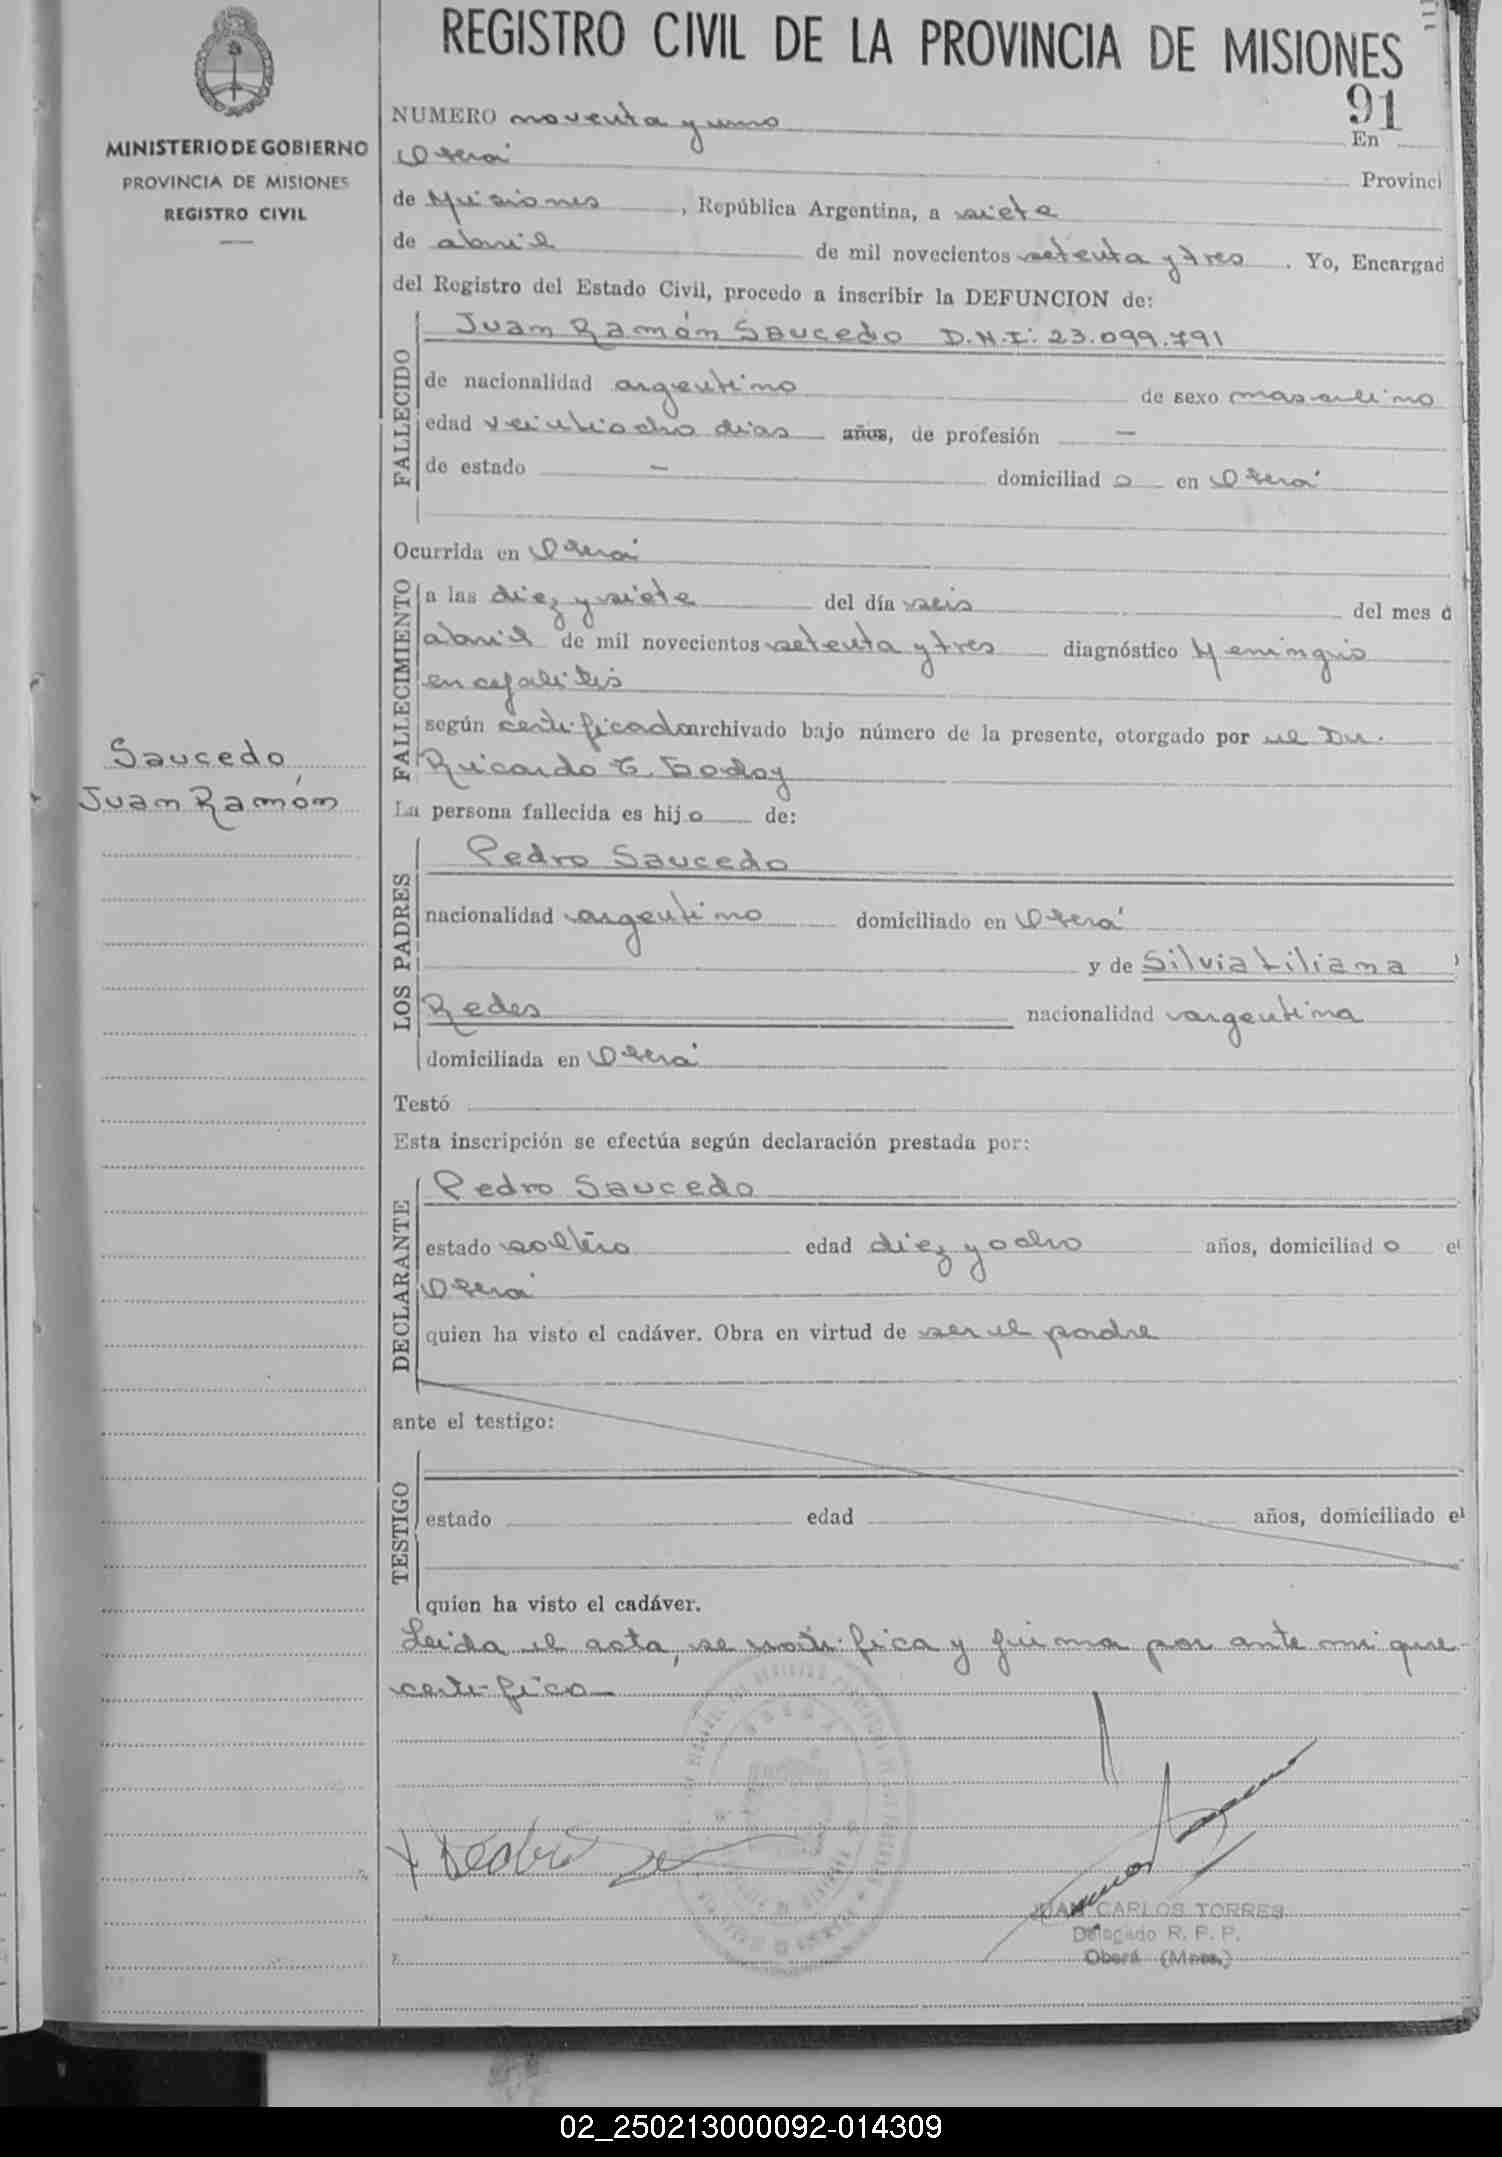 REGISTRO CIVIL DE LA PROVINCIA DE MISIONES
MINISTERIO DE GOBIERNO
PROVINCIA DE MISIONES
REGISTRO CIVIL
91
NUMERO noventa y uno En
Oberá Provinci
de Misiones, República Argentina, a siete
de abril de mil novecientos setenta y tres. Yo, Encargad
del Registro del Estado Civil, procedo a inscribir la DEFUNCION de:
FALLECIDO
Juan Ramón Saucedo D.N.I: 23.099.791
de nacionalidad argentino de sexo masculino
edad veintiocho dias años, de profesión —
de estado — domiciliad o en Oberá
Ocurrida en Oberá
FALLECIMIENTO
a las diez y siete del día seis del mes d
abril de mil novecientos setenta y tres diagnóstico Meningio
encefalitis
según certificado archivado bajo número de la presente, otorgado por el Dr.
Ricardo E. Godoy
Saucedo,
Juan Ramón
La persona fallecida es hijo de:
LOS PADRES
Pedro Saucedo
nacionalidad argentino domiciliado en Oberá
y de Silvia Liliana
Redes nacionalidad argentina
domiciliada en Oberá
Testó
Esta inscripción se efectúa según declaración prestada por:
DECLARANTE
Pedro Saucedo
estado soltero edad diez y ocho años, domiciliad o e
Oberá
quien ha visto el cadáver. Obra en virtud de ser el padre
ante el testigo:
TESTIGO
estado edad años, domiciliado e
quien ha visto el cadáver.
Leida el acta, se ratifica y firma por ante mi que
certifico—
Pedro
JUAN CARLOS TORRES
Delegado R. P. P.
Oberá (Mnes.)
02_250213000092-014309